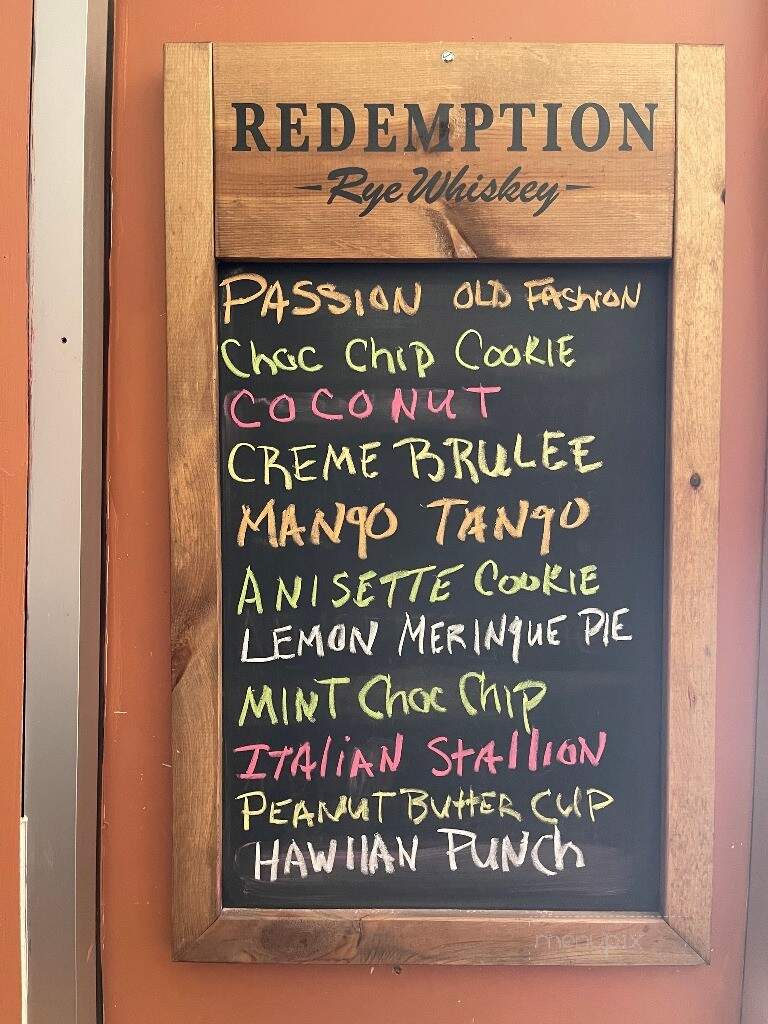 REDEMPTION
-Rye Whiskey-
PASSION OLD FASHION
Choc Chip COOKIE
COCONUT
CREME BRULEE
MANgO TANgO
ANISETTE COOKIE
LEMON MERINgUE PIE
MINT Choc Chip
ITALiAN STAllION
PEANUT BUttER CUP
HAWIIAN PUNCh
menupix